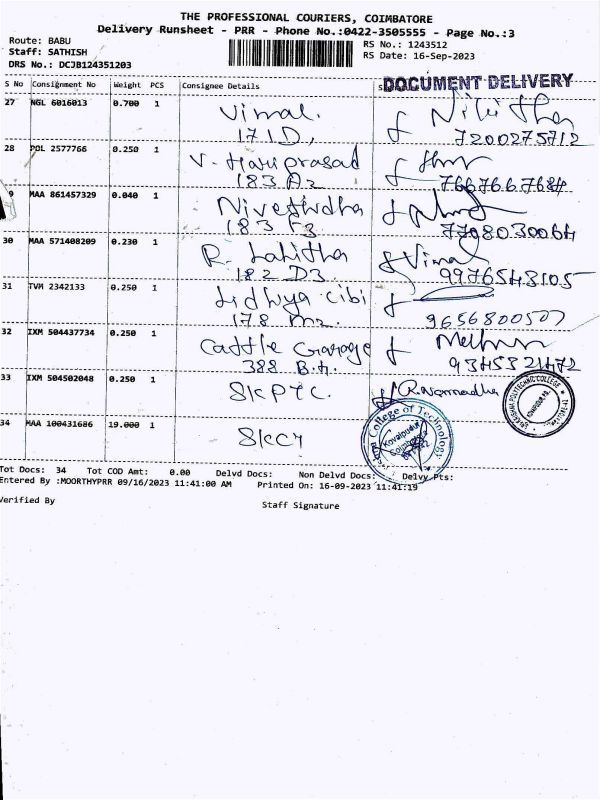 THE PROFESSIONAL COURIERS, COIMBATORE
Delivery Runsheet - PRR - Phone No.:0422-3505555 - Page No.:3
Route: BABU
Staff: SATHISH
DRS No.: DCJB124351203
RS No.: 1243512
RS Date: 16-Sep-2023
DOCUMENT DELIVERY
S No Consignment No Weight PCS Consignee Details
27 NGL 6016013 0.700 1 Vimal. Nikitha
171D, 7200275712
28 POL 2577766 0.250 1 V. Hariprasad
183 A2 7667667684
MAA 861457329 0.040 1 Nivethidha
183 F3 7708030064
30 MAA 571408209 0.230 1 R. Lahitha Vimal
182 D3 9976543105
31 TVM 2342133 0.250 1 Cibi
178 M2 9656800507
32 IXM 504437734 0.250 1 Cattle Garage
388 B.H. 9345321472
33 IXM 504502048 0.250 1 SKPTC R. Narmadha
34 MAA 100431686 19.000 1 SKCT
College of Technology
Kovaipudur
Coimbatore
POLYTECHNIC COLLEGE
Tot Docs: 34 Tot COD Amt: 0.00 Delvd Docs: Non Delvd Docs: Delvy Pts:
Entered By :MOORTHYPRR 09/16/2023 11:41:00 AM Printed On: 16-09-2023 11:41:19
Verified By
Staff Signature